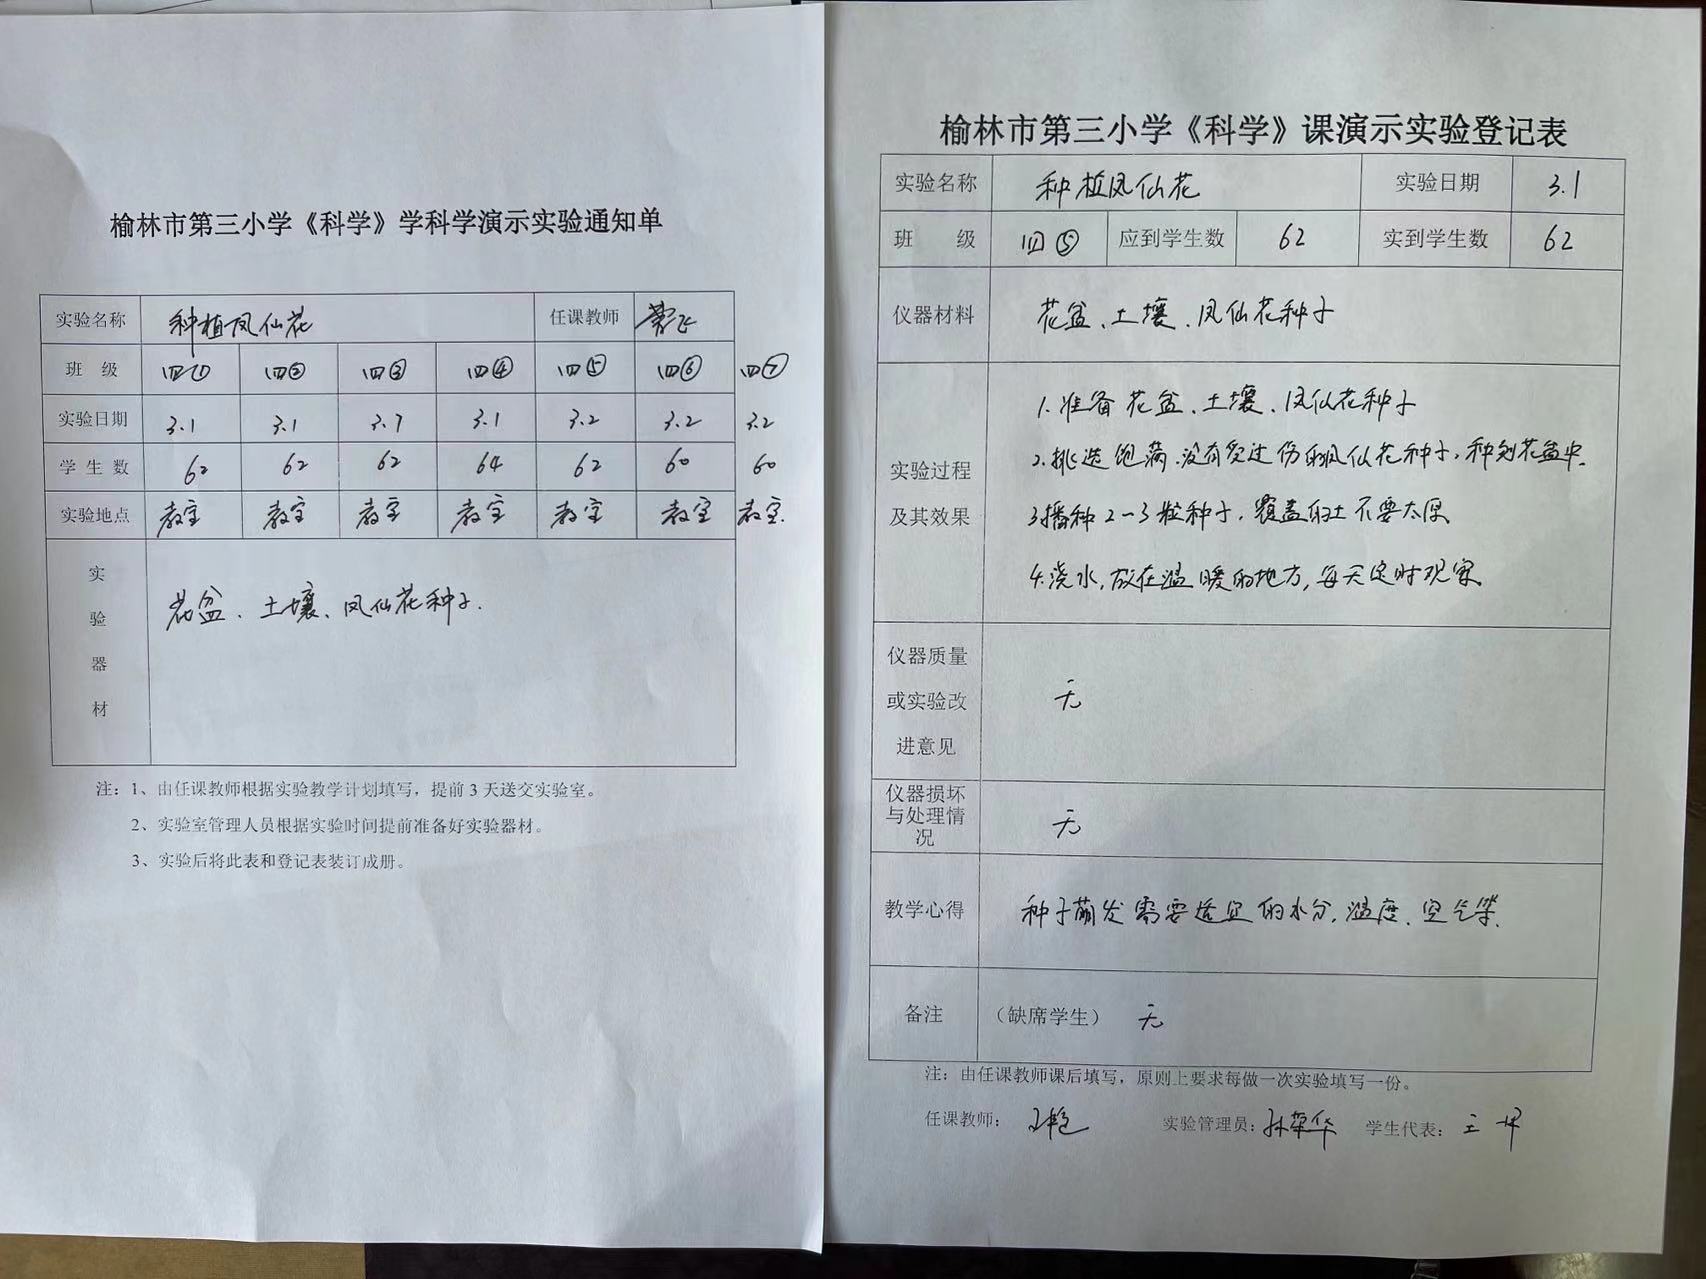 榆林市第三小学《科学》学科学演示实验通知单
实验名称 种植凤仙花 任课教师
班 级 四① 四② 四③ 四④ 四⑤ 四⑥ 四⑦
实验日期 3.1 3.1 3.7 3.1 3.2 3.2 3.2
学生数 62 62 62 64 62 60 60
实验地点 教室 教室 教室 教室 教室 教室 教室.
实验器材 花盆、土壤、凤仙花种子.
注：1、由任课教师根据实验教学计划填写，提前3天送交实验室。
2、实验室管理人员根据实验时间提前准备好实验器材。
3、实验后将此表和登记表装订成册。
榆林市第三小学《科学》课演示实验登记表
实验名称 种植凤仙花 实验日期 3.1
班 级 四⑤ 应到学生数 62 实到学生数 62
仪器材料 花盆、土壤、凤仙花种子
实验过程及其效果
1.准备花盆、土壤、凤仙花种子
2.挑选饱满、没有受过伤的凤仙花种子，种到花盆中.
3.播种2-3粒种子，覆盖的土不要太厚.
4.浇水，放在温暖的地方，每天定时观察.
仪器质量或实验改进意见 无
仪器损坏与处理情况 无
教学心得 种子萌发需要适宜的水分，温度、空气等.
备注 （缺席学生） 无
注：由任课教师课后填写，原则上要求每做一次实验填写一份。
任课教师： 实验管理员: 孙荣华 学生代表: